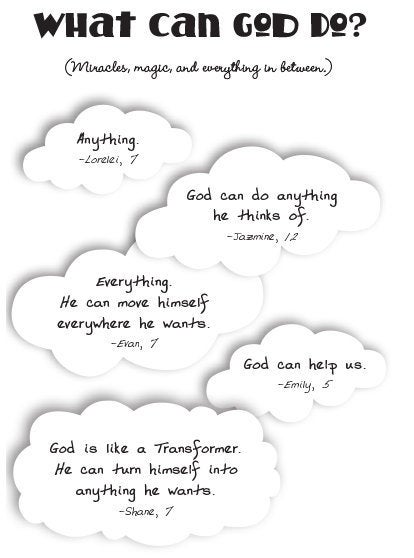 What Can God Do?
(Miracles, magic, and everything in between.)
Anything.
-Lorelei, 7
God can do anything
he thinks of.
-Jazmine, 12
Everything.
He can move himself
everywhere he wants.
-Evan, 7
God can help us.
-Emily, 5
God is like a Transformer.
He can turn himself into
anything he wants.
-Shane, 7